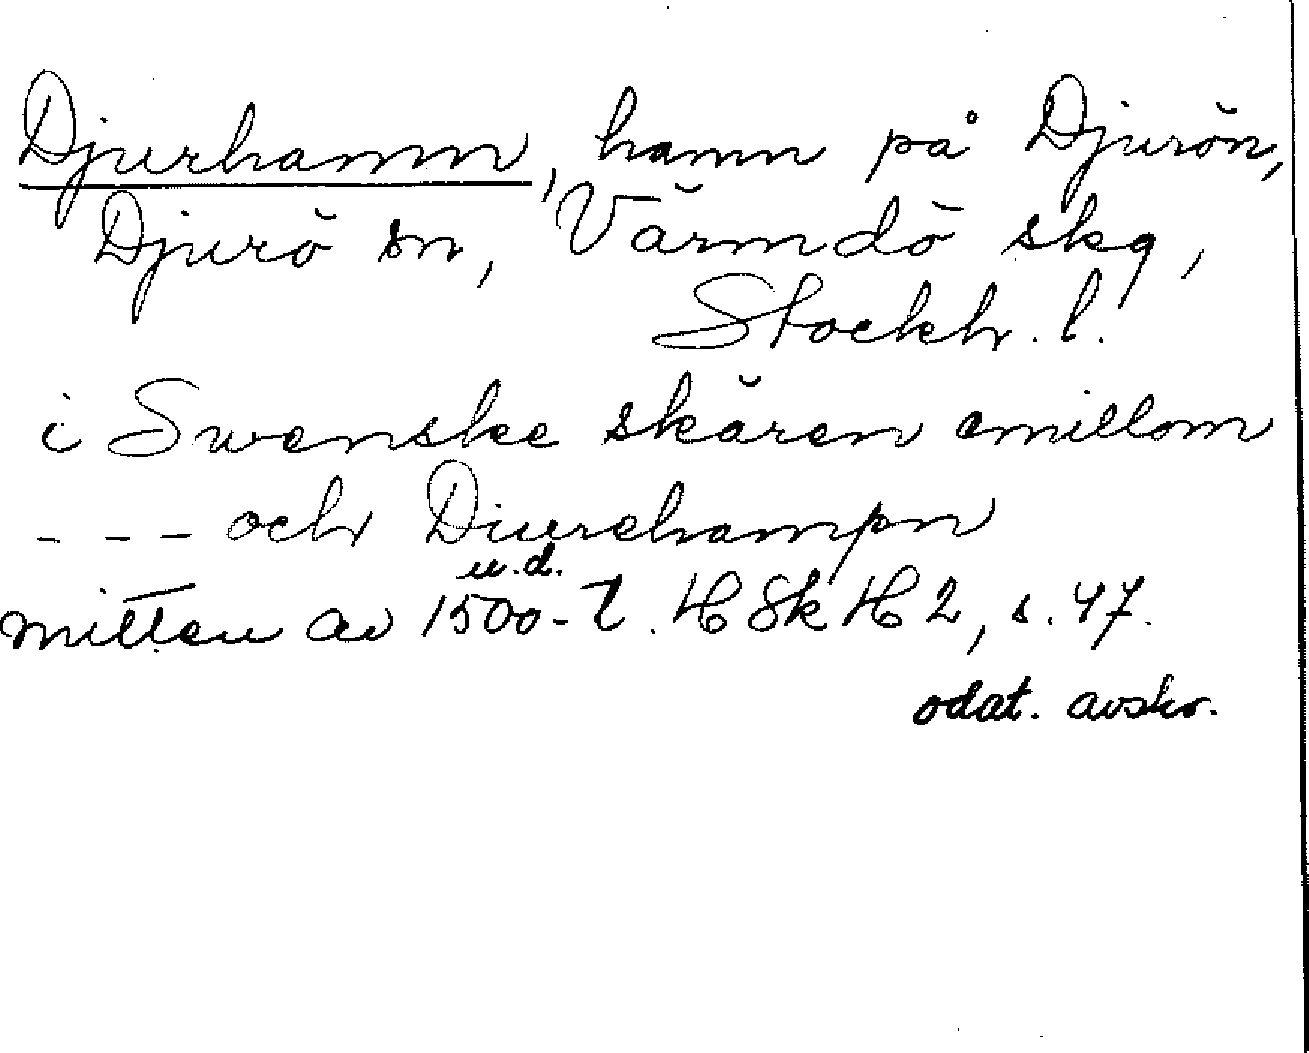 Djurhamn, hamn på Djurön,
Djurö sn, Värmdö skg,
Stockh. l.
i Swenske skären emillom
- - - och Diurehampn
u.d.
mitten av 1500-t. HSkH 2, s. 47.
odat. avskr.